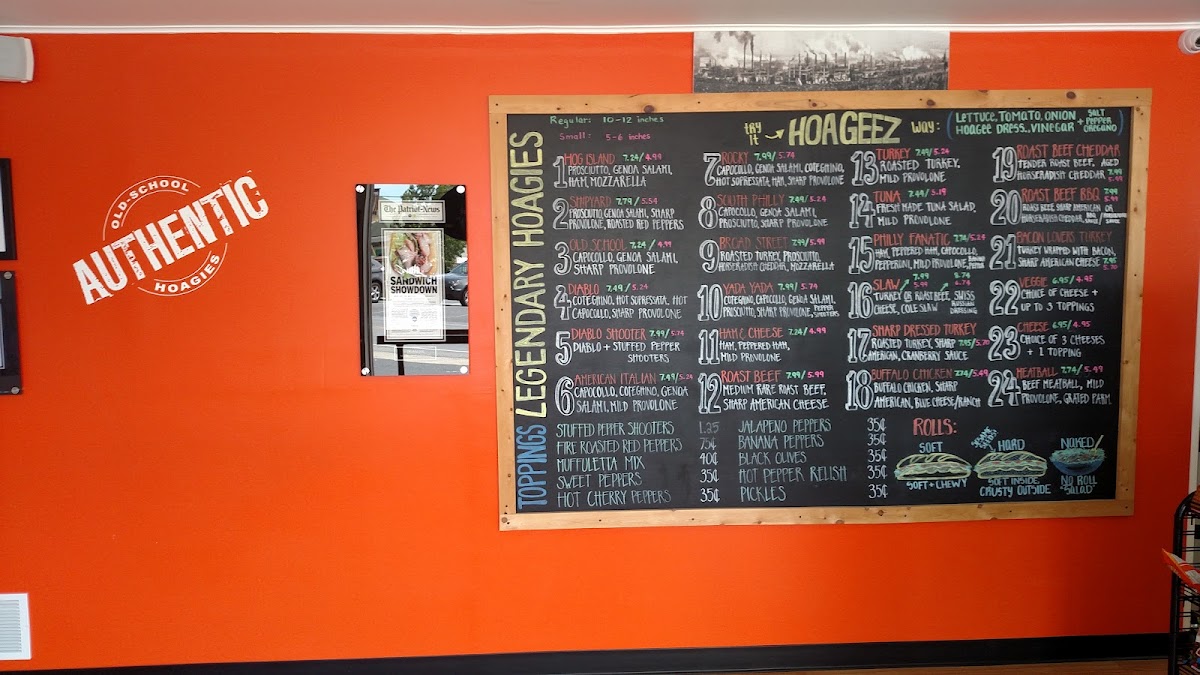 OLD-SCHOOL
AUTHENTIC
HOAGIES
The Patriot-News
SANDWICH
SHOWDOWN
Regular: 10-12 inches
Small: 5-6 inches
TRY IT → HOAGEEZ WAY:
(LETTUCE, TOMATO, ONION
HOAGEE DRESS..VINEGAR
+ SALT
PEPPER
OREGANO)
LEGENDARY HOAGIES
1 HOG ISLAND 7.24/4.99
PROSCIUTTO, GENOA SALAMI,
HAM, MOZZARELLA
2 SHIPYARD 7.79/5.54
PROSCIUTTO, GENOA SALAMI, SHARP
PROVOLONE, ROASTED RED PEPPERS
3 OLD SCHOOL 7.24/4.99
CAPOCOLLO, GENOA SALAMI,
SHARP PROVOLONE
4 DIABLO 7.49/5.24
COTEGHINO, HOT SOPRESATA, HOT
CAPOCOLLO, SHARP PROVOLONE
5 DIABLO SHOOTER 7.99/5.74
DIABLO + STUFFED PEPPER
SHOOTERS
6 AMERICAN ITALIAN 7.49/5.24
CAPOCOLLO, COTEGHINO, GENOA
SALAMI, MILD PROVOLONE
7 ROCKY 7.99/5.74
CAPOCOLLO, GENOA SALAMI, COTEGHINO,
HOT SOPRESSATA, HAM, SHARP PROVOLONE
8 SOUTH PHILLY 7.49/5.24
CAPOCOLLO, GENOA SALAMI,
PROSCIUTTO, SHARP PROVOLONE
9 BROAD STREET 7.99/5.99
ROASTED TURKEY, PROSCIUTTO,
HORSERADISH CHEDDAR, MOZZARELLA
10 YADA YADA 7.99/5.74
COTEGHINO, CAPOCOLLO, GENOA SALAMI,
PROSCIUTTO, SHARP PROVOLONE, PEPPER
SHOOTERS
11 HAM & CHEESE 7.24/4.99
HAM, PEPPERED HAM,
MILD PROVOLONE
12 ROAST BEEF 7.99/5.99
MEDIUM RARE ROAST BEEF,
SHARP AMERICAN CHEESE
13 TURKEY 7.49/5.24
ROASTED TURKEY,
MILD PROVOLONE
14 TUNA 7.49/5.19
FRESH MADE TUNA SALAD,
MILD PROVOLONE
15 PHILLY FANATIC 7.74/5.24
HAM, PEPPERED HAM, CAPOCOLLO,
PEPPERONI, MILD PROVOLONE, BANANA
PEPPER
16 SLAW 7.99 5.99 8.74 6.74
TURKEY OR ROAST BEEF, SWISS
CHEESE, COLE SLAW RUSSIAN
DRESSING
17 SHARP DRESSED TURKEY
ROASTED TURKEY, SHARP 7.95/5.70
AMERICAN, CRANBERRY SAUCE
18 BUFFALO CHICKEN 7.74/5.49
BUFFALO CHICKEN, SHARP
AMERICAN, BLUE CHEESE/RANCH
19 ROAST BEEF CHEDDAR
TENDER ROAST BEEF, AGED
HORSERADISH CHEDDAR 7.99
5.99
20 ROAST BEEF BBQ 7.99
5.99
ROAST BEEF, SHARP AMERICAN OR
HORSERADISH CHEDDAR, BBQ / HORSERADISH
SAUCE
21 BACON LOVERS TURKEY
TURKEY WRAPPED WITH BACON,
SHARP AMERICAN CHEESE 7.95
5.70
22 VEGGIE 6.95/4.95
CHOICE OF CHEESE +
UP TO 3 TOPPINGS
23 CHEESE 6.95/4.95
CHOICE OF 3 CHEESES
+ 1 TOPPING
24 MEATBALL 7.74/5.49
BEEF MEATBALL, MILD
PROVOLONE, GRATED PARM.
TOPPINGS
STUFFED PEPPER SHOOTERS 1.25
FIRE ROASTED RED PEPPERS 75¢
MUFFULETTA MIX 40¢
SWEET PEPPERS 35¢
HOT CHERRY PEPPERS 35¢
JALAPENO PEPPERS 35¢
BANANA PEPPERS 35¢
BLACK OLIVES 35¢
HOT PEPPER RELISH 35¢
PICKLES 35¢
ROLLS:
SOFT
SOFT + CHEWY
HARD
SOFT INSIDE
CRUSTY OUTSIDE
NAKED
NO ROLL
"SALAD"